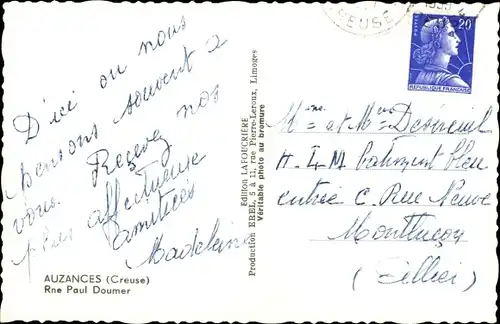 D'ici où nous
pensons souvent à
vous. Recevez nos
plus affectueuse
amitiés
Madeleine
AUZANCES (Creuse)
Rne Paul Doumer
Edition LAFOUCRIÈRE
Production EREL, 5 à 11, rue Pierre-Leroux, Limoges
Véritable photo au bromure
CREUSE
POSTES
20F
REPUBLIQUE FRANÇAISE
Mme et Mr
H.L.M bâtiment bleu
entrée C. Rue Neuve
Montluçon
(Allier)